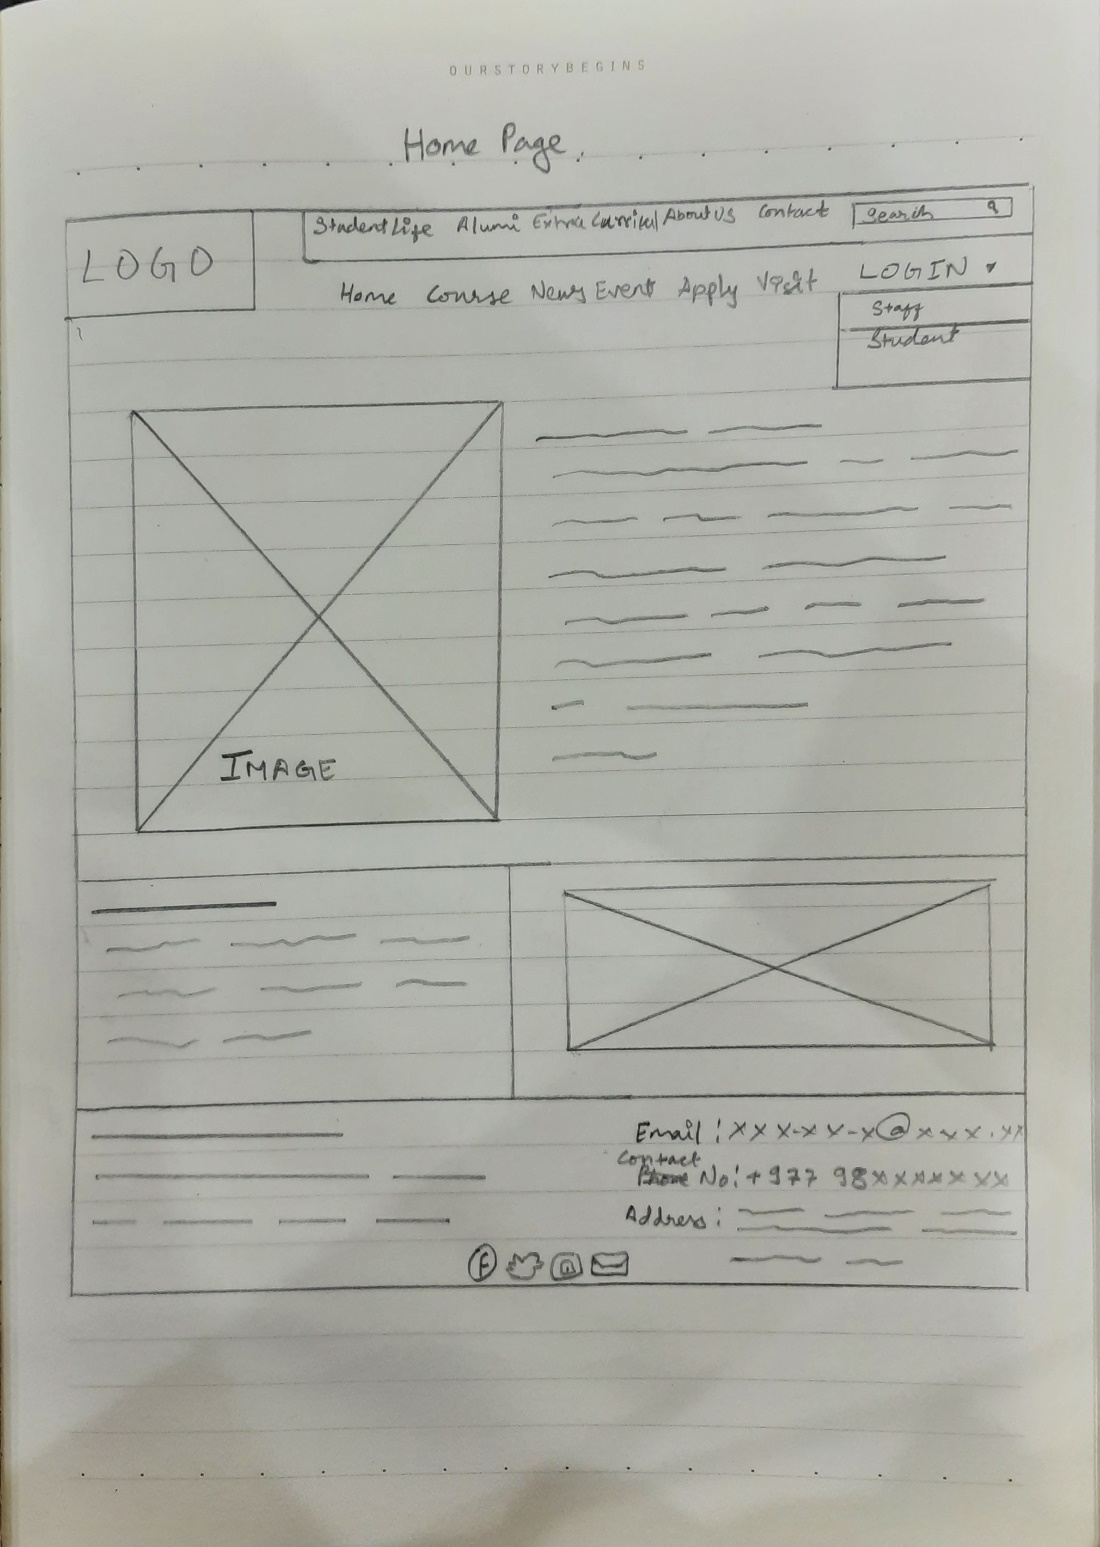 OURSTORYBEGINS
Home Page
Student Life Alumi Extra Curricul About Us Contact Search
LOGO
Home Course News Event Apply Visit LOGIN
Staff
Student
IMAGE
Email : xxx-xx-x@xxx.xx
Contact
Phone No: +977 98xxxxxxxx
Address :